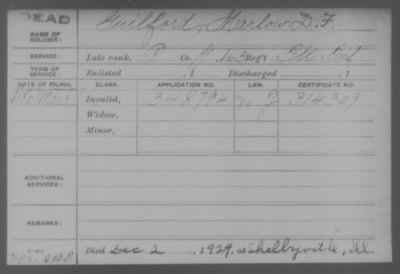 DEAD
NAME OF SOLDIER:
Guilford, Marlow D. F.
SERVICE:
Late rank, P Co. G, 143 Reg't Ills Inf
TERM OF SERVICE:
Enlisted , 1 Discharged , 1
DATE OF FILING. CLASS. APPLICATION NO. LAW. CERTIFICATE NO.
Invalid, 348794 G 314309
Widow,
Minor,
ADDITIONAL SERVICES:
REMARKS:
Died Dec 2 , 1929, at Shelbyville, Ill.